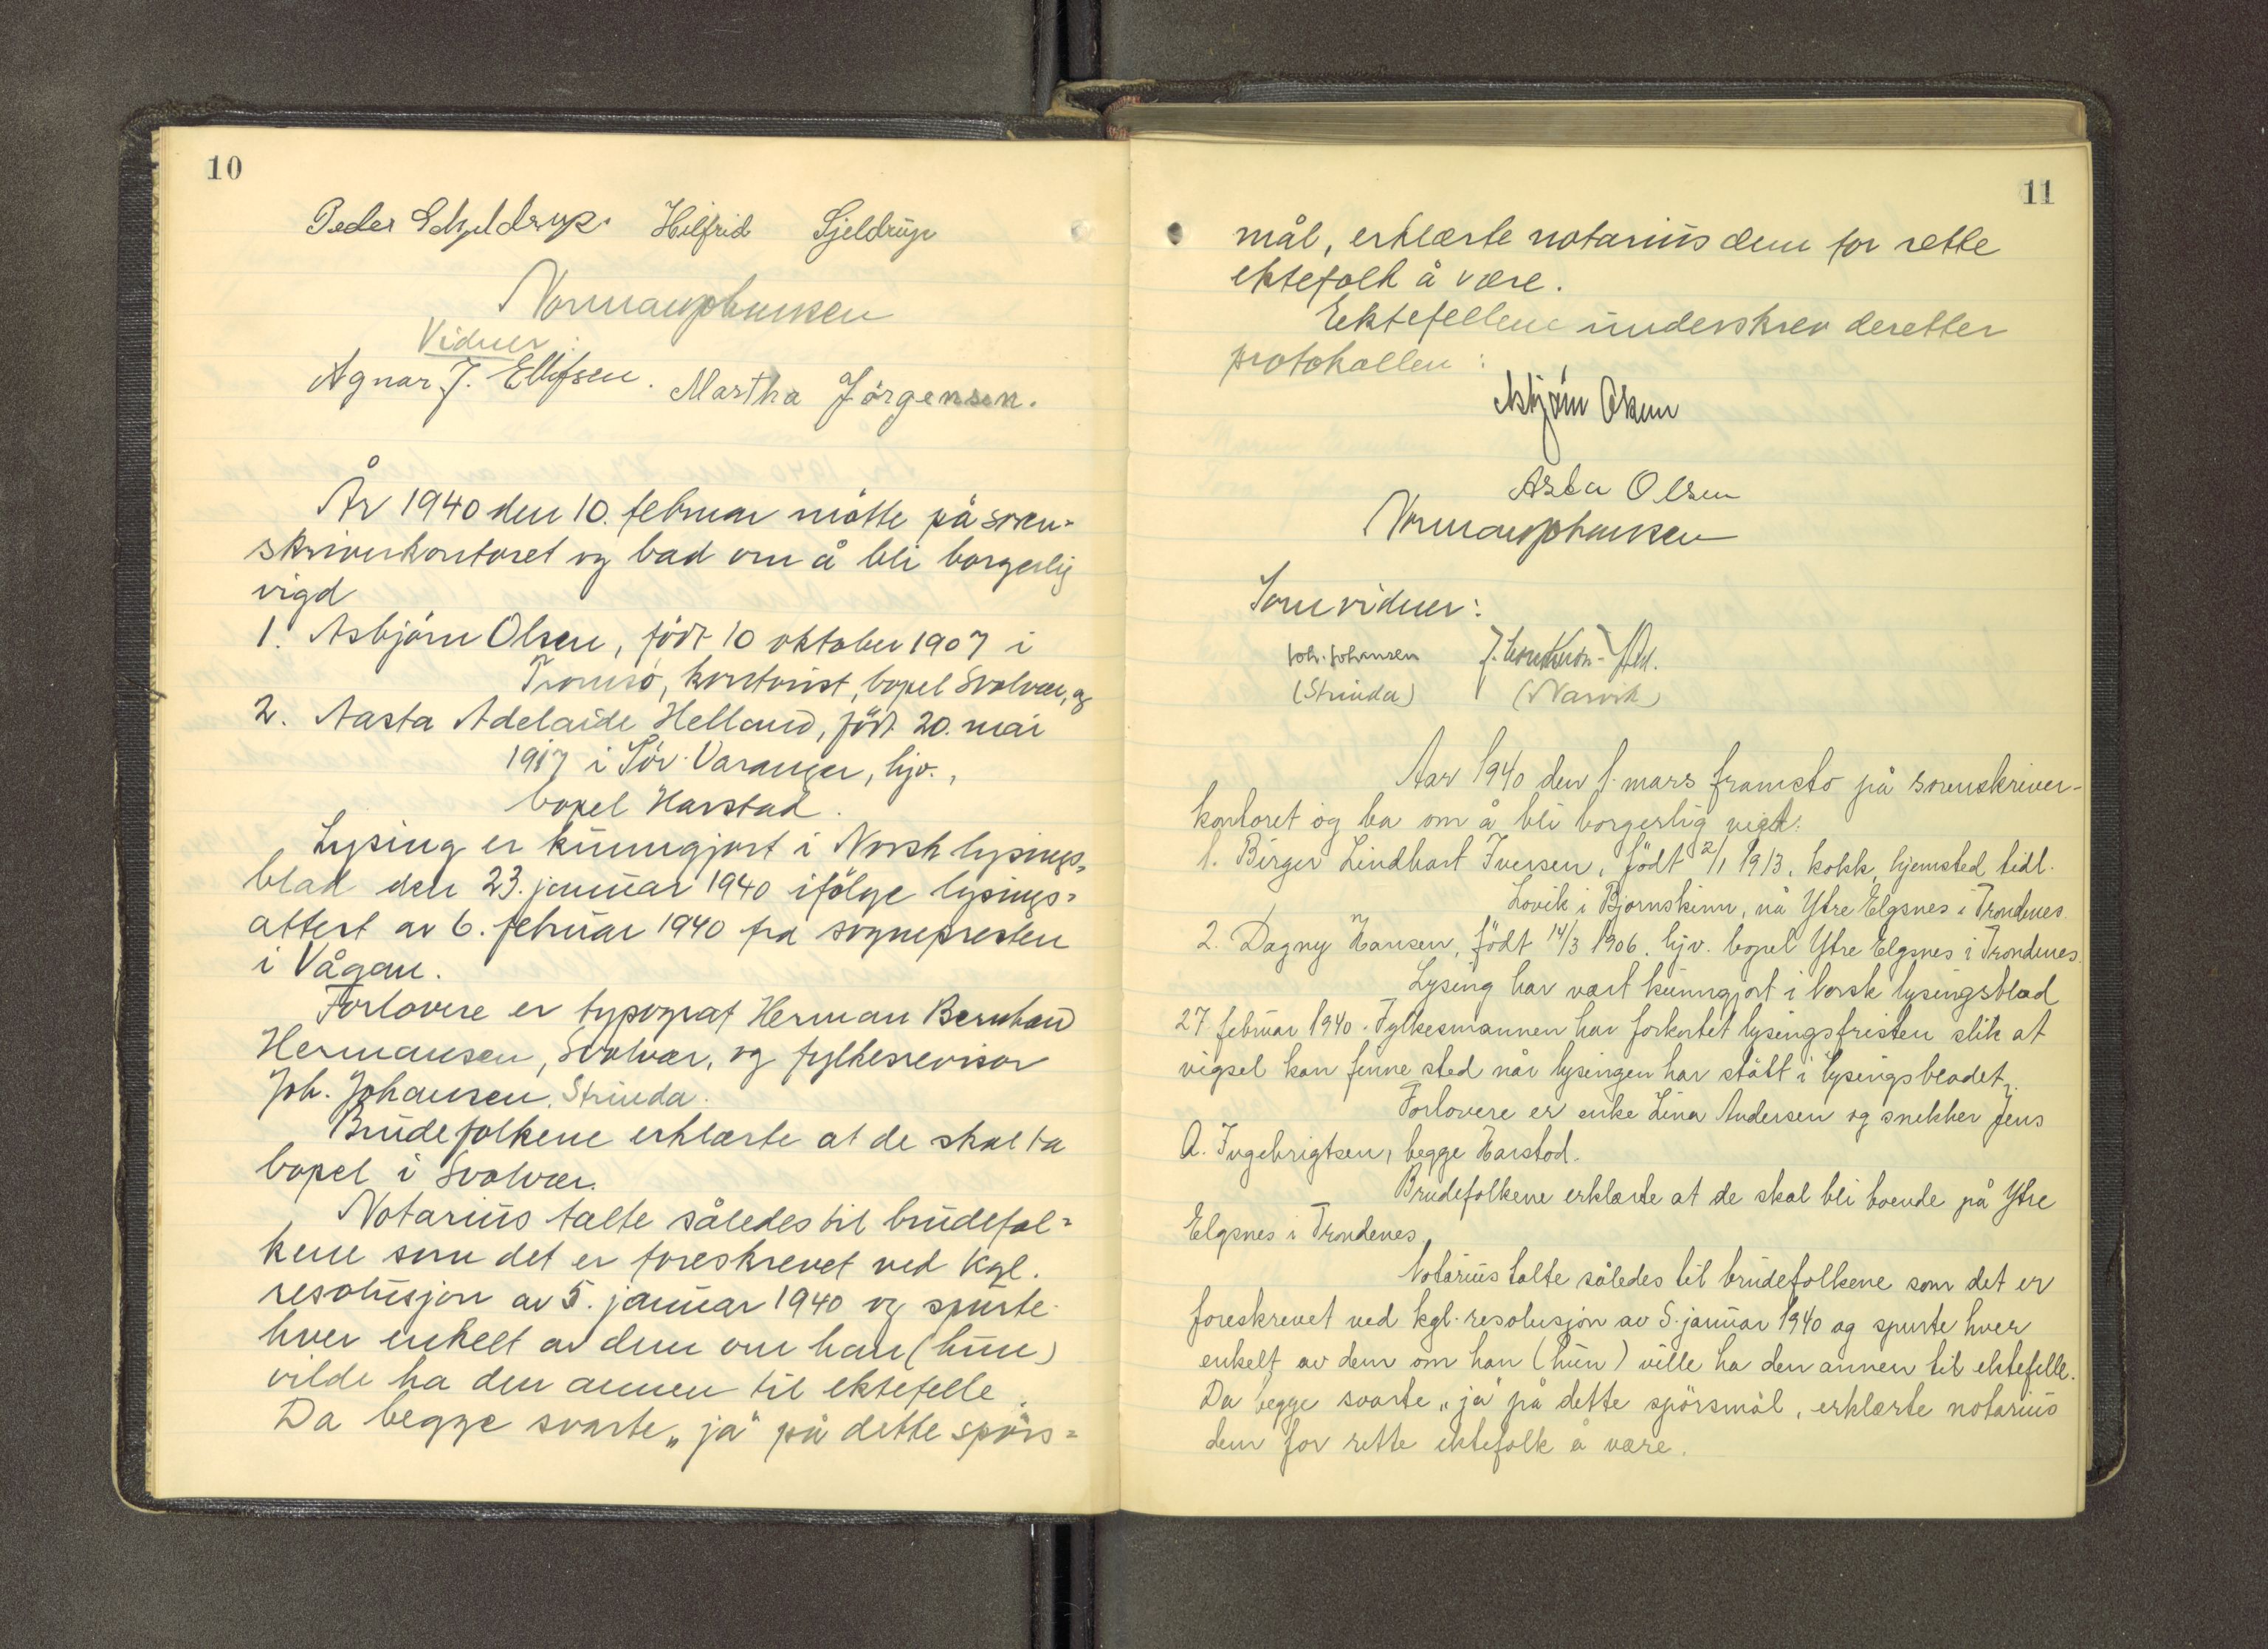 10
Peder Schjeldrup. Hilfrid Sjeldrup
Vidner:
Agnar J. Ellefsen. Martha Jörgensen.
År 1940 den 10. februar møtte på soren-
skriverkontoret og bad om å bli borgerlig
vigd
1. Asbjörn Olsen, født 10 oktober 1907 i
Tromsö, kontorist, bopel Svolvær, og
2. Aasta Adelaide Helland, født 20. mai
1917 i Sör-Varanger, hjv.,
bopel Harstad.
Lysing er kunngjort i Norsk lysings-
blad den 23. januar 1940 ifölge lysings-
attest av 6. februar 1940 fra sognepresten
i Vågan.
Forlovere er typograf Herman Bernhard
Hermansen, Svolvær, og fylkesrevisor
Joh. Johansen, Strinda.
Brudefolkene erklærte at de skal ta
bopel i Svolvær.
Notarius talte således til brudefol-
kene som det er foreskrevet ved Kgl.
resolusjon av 5. januar 1940 og spurte
hver enkelt av dem om han (hun)
vilde ha den annen til ektefelle.
Da begge svarte „ja" på dette spörs-
11
mål, erklærte notarius dem for rette
ektefolk å være.
Ektefellene underskrev deretter
protokollen:
Asbjörn Olsen
Asta Olsen
Som vidner:
Joh. Johansen
(Strinda) (Narvik)
Aar 1940 den 1. mars framsto på sorenskriver-
kontoret og ba om å bli borgerlig vigd:
1. Birger Lindhart Iversen, født 2/1 1913, kokk, hjemsted tidl.
Lovik i Bjørnskinn, nå Ytre Elgsnes i Trondenes.
2. Dagny Hansen, födt 14/3 1906. hjv. bopel Ytre Elgsnes i Trondenes.
Lysing har vært kunngjort i Norsk lysingsblad
27. februar 1940. Fylkesmannen har forkortet lysingsfristen slik at
vigsel kan finne sted når lysingen har stått i lysingsbladet.
Forlovere er enke Lina Andersen og snekker Jens
A. Ingebrigtsen, begge Harstad.
Brudefolkene erklærte at de skal bli boende på Ytre
Elgsnes i Trondenes.
Notarius talte således til brudefolkene som det er
foreskrevet ved kgl. resolusjon av 5. januar 1940 og spurte hver
enkelt av dem om han (hun) ville ha den annen til ektefelle.
Da begge svarte „ja" på dette spörsmål, erklærte notarius
dem for rette ektefolk å være.